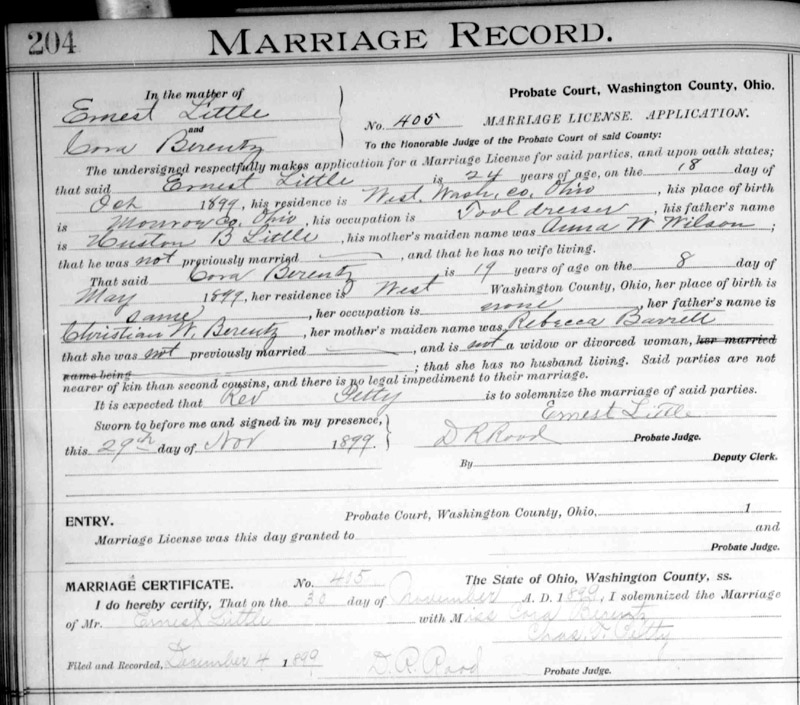 204 MARRIAGE RECORD.
In the matter of
Ernest Little
and
Cora Berentz
Probate Court, Washington County, Ohio.
No. 405 MARRIAGE LICENSE. APPLICATION.
To the Honorable Judge of the Probate Court of said County:
The undersigned respectfully makes application for a Marriage License for said parties, and upon oath states;
that said Ernest Little is 24 years of age, on the 18 day of
Oct 1899, his residence is West, Wash, Co, Ohio, his place of birth
is Monroe Co, Ohio, his occupation is Tool dresser, his father's name
is Huston B Little, his mother's maiden name was Anna W Wilson;
that he was not previously married, and that he has no wife living.
That said Cora Berentz is 19 years of age on the 8 day of
May 1899, her residence is West Washington County, Ohio, her place of birth is
same, her occupation is none, her father's name is
Christian W. Berentz, her mother's maiden name was Rebecca Barrett
that she was not previously married, and is not a widow or divorced woman, her married
name being; that she has no husband living. Said parties are not
nearer of kin than second cousins, and there is no legal impediment to their marriage.
It is expected that Rev Petty is to solemnize the marriage of said parties.
Ernest Little
Sworn to before me and signed in my presence,
this 29th day of Nov 1899
D R Rood Probate Judge.
By Deputy Clerk.
ENTRY. Probate Court, Washington County, Ohio, 1
Marriage License was this day granted to and
Probate Judge.
MARRIAGE CERTIFICATE. No. 405 The State of Ohio, Washington County, ss.
I do hereby certify, That on the 30 day of November A. D. 1899, I solemnized the Marriage
of Mr. Ernest Little with Miss Cora Berentz
Chas. T. Petty
Filed and Recorded, December 4 1899 D. R. Rood Probate Judge.